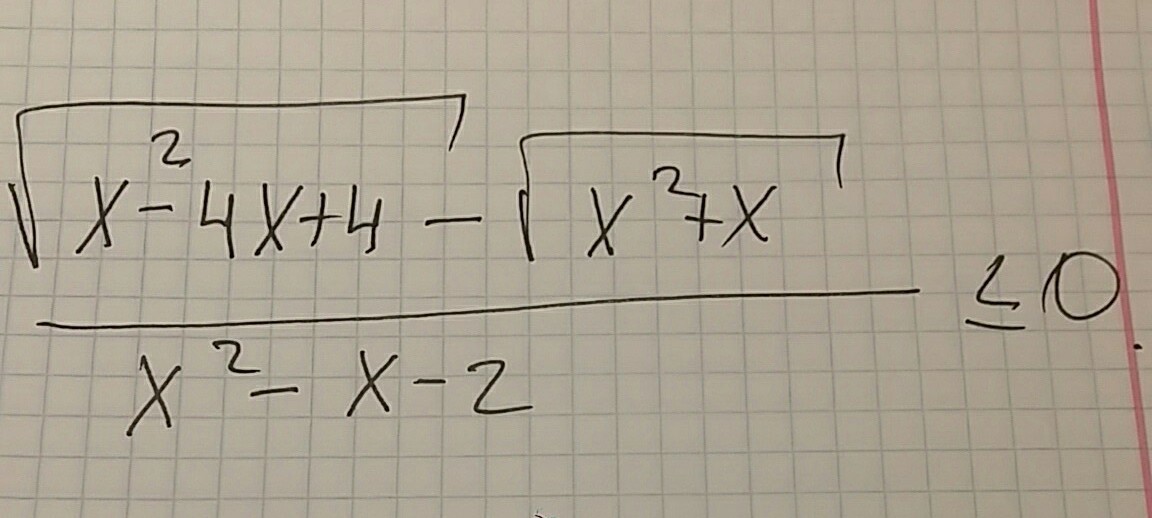 √(x²-4x+4) - √(x²+x)
x²-x-2
≤0.